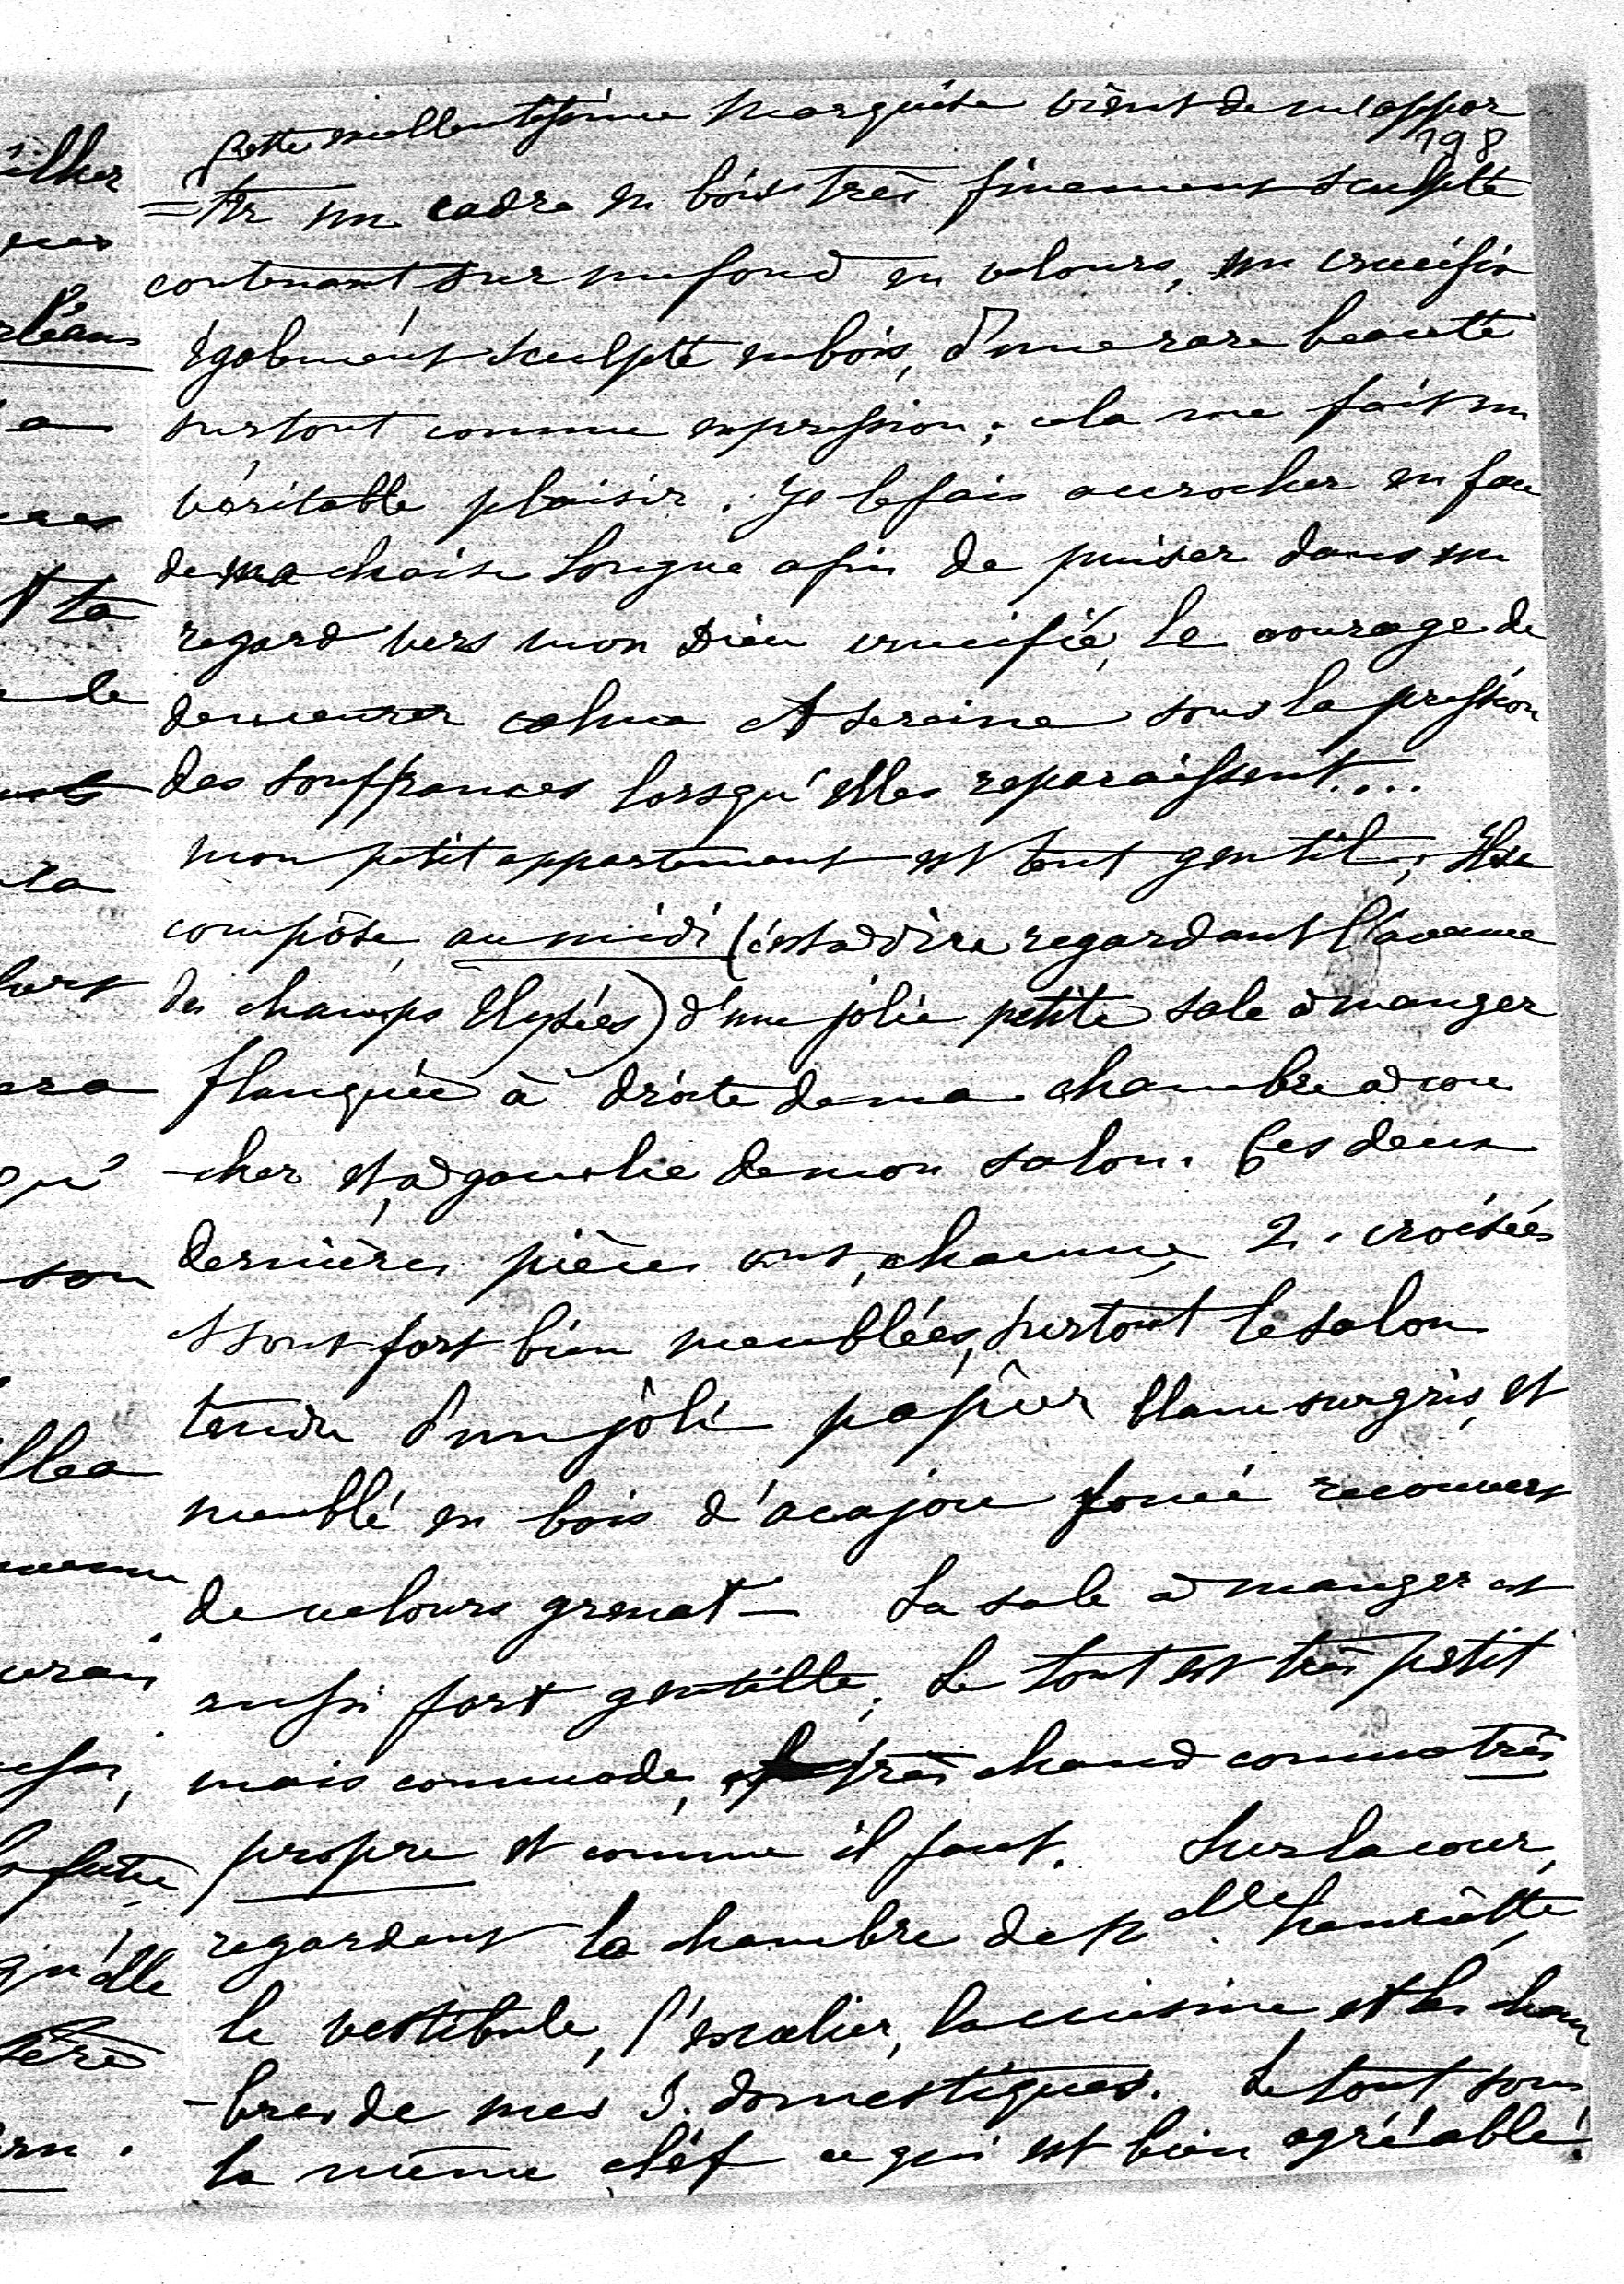 Cette excellentissime marquise vient de m'appor
198
=ter un cadre en bois très finement sculpté
contenant sur un fond en velours, un crucifix
également sculpté en bois, d'une rare beauté
surtout comme expression; cela me fait un
véritable plaisir. Je le fais accrocher en face
de ma chaise longue afin de puiser dans un
regard vers mon Dieu crucifié, le courage de
demeurer calme et sereine sous la pression
des souffrances lorsqu'elles reparaissent....
mon petit appartement est tout gentil; Il se
compose, au midi (c'est à dire regardant l'avenue
des champs Elysées) d'une jolie petite sale à manger
flanquée à droite de ma chambre à cou
-cher et, à gauche de mon salon. Ces deux
dernières pièces ont, chacune, 2. croisées
et sont fort bien meublées, surtout le salon
tendu d'un joli papier blanc sur gris, et
meublé en bois d'acajou foncé recouvert
de velours grenat — La sale à manger est
aussi fort gentille; Le tout est très petit
mais commode, très chaud comme très
propre et comme il faut. Sur la cour,
regardent la chambre de Melle henriette,
le vestibule, l'escalier, la cuisine et les cham
-bres de mes 3. domestiques. Le tout sous
la même clef ce qui est bien agréable!